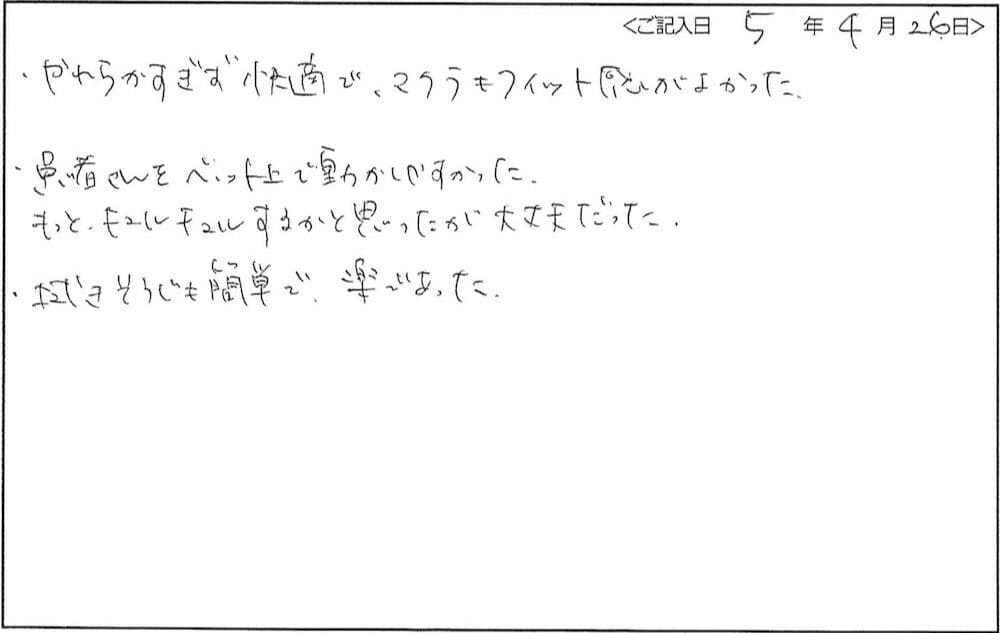 <ご記入日 5 年 4 月 26日>
・やわらかすぎず快適で、マクラもフィット感がよかった。
・患者さんをベット上で動かしやすかった。
もっと、キュルキュルするかと思ったが大丈夫だった。
・拭きそうじも簡単で、楽であった。